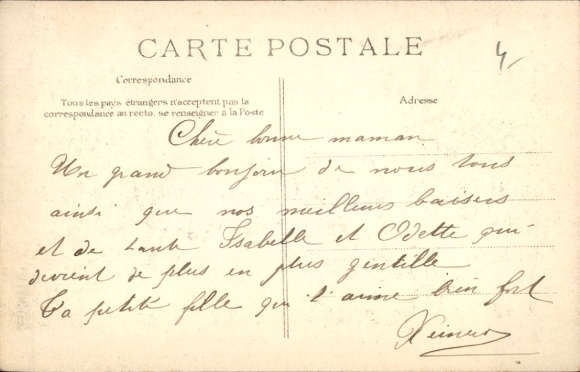 CARTE POSTALE
4,-
Correspondance
Tous les pays étrangers n'acceptent pas la
correspondance au recto. se renseigner à la Poste
Adresse
Chère bonne maman
Un grand bonjour de nous tous
ainsi que nos meilleurs baisers
et de tante Isabelle et Odette qui
devient de plus en plus gentille
Ta petite fille qui t'aime bien fort